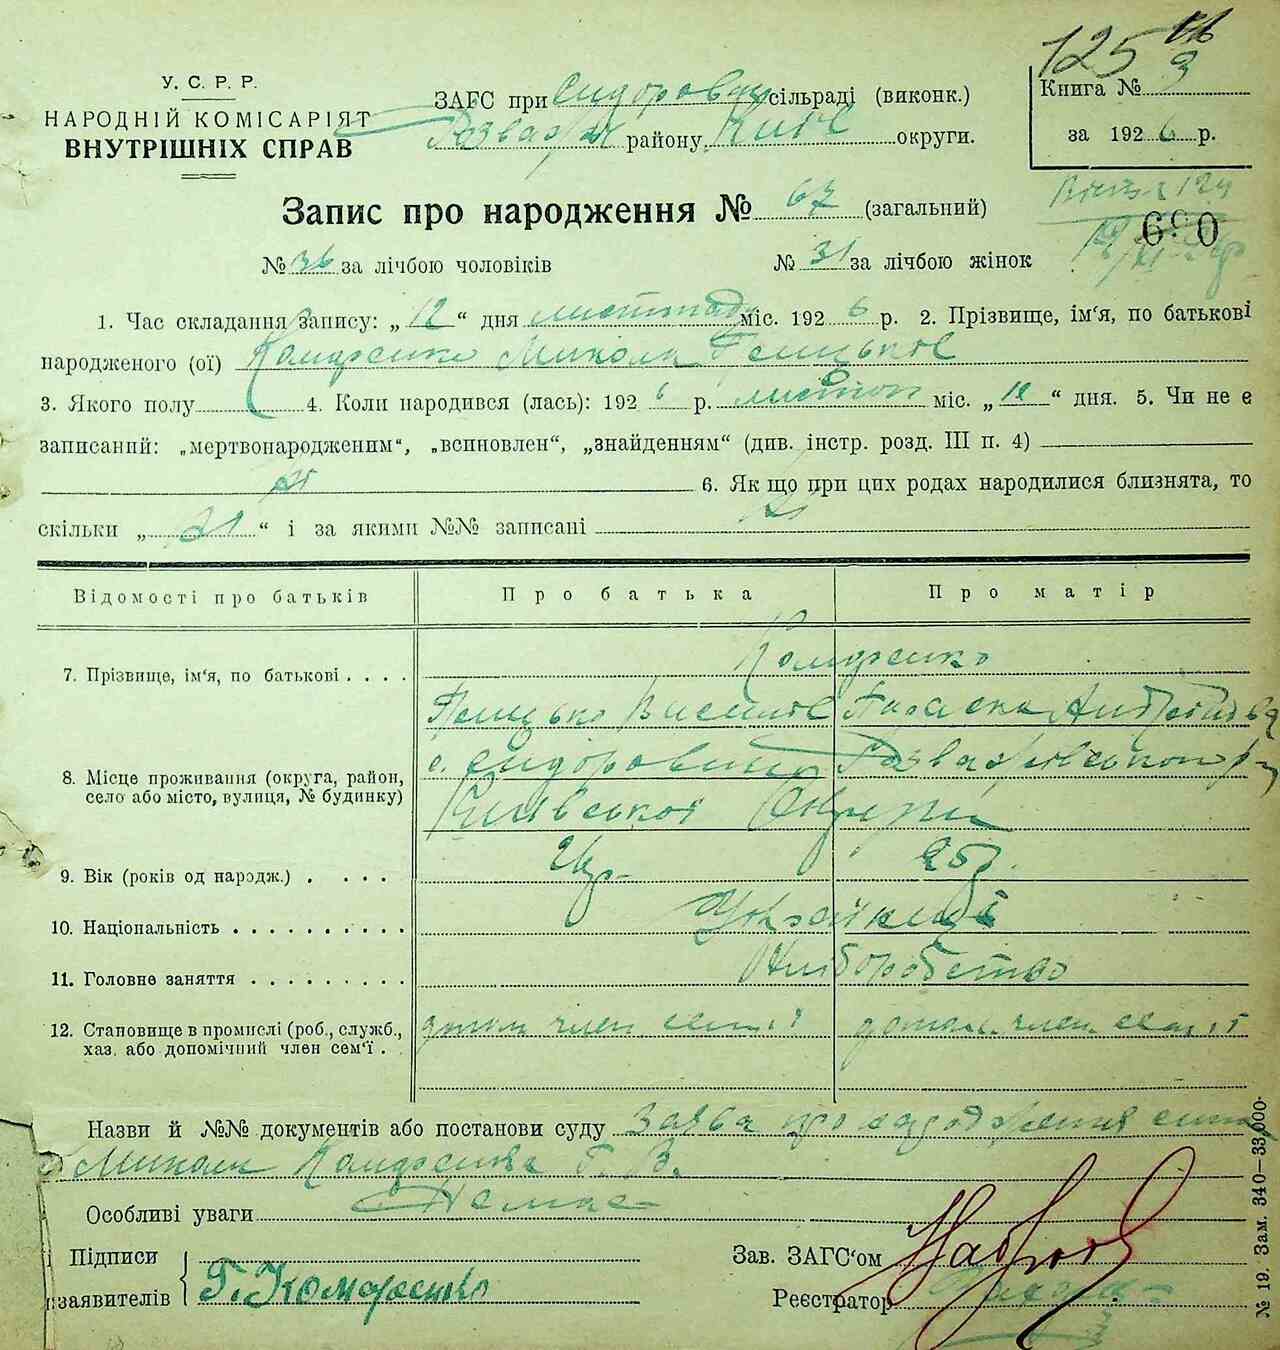 125
У. С. Р. Р.
НАРОДНІЙ КОМІСАРІЯТ
ВНУТРІШНІХ СПРАВ
ЗАГС при сільраді (виконк.)
району округи.
Книга № 3
за 1926 р.
Запис про народження № 67 (загальний)
690
№ 36 за лічбою чоловіків № 31 за лічбою жінок
1. Час складання запису: „12“ дня листопада міс. 1926 р. 2. Прізвище, ім‘я, по батькові
народженого (ої) Микола Грицьків
3. Якого полу 4. Коли народився (лась): 1926 р. листоп міс. „12“ дня. 5. Чи не є
записаний: „мертвонародженим“, „всиновлен“, „знайденням“ (див. інстр. розд. III п. 4)
6. Як що при цих родах народилися близнята, то
скільки „ “ і за якими №№ записані
Відомості про батьків Про батька Про матір
7. Прізвище, ім‘я, по батькові
Грицько Параска Андріївна
8. Місце проживання (округа, район,
село або місто, вулиця, № будинку)
Київської Округи
9. Вік (років од народж.) 25 р.
10. Національність Українці
11. Головне заняття Хліборобство
12. Становище в промислі (роб., служб.,
хаз. або допомічний член сем‘ї
допом член сем‘ї допом. член сем‘ї
Назви й №№ документів або постанови суду Заява про народження сина
Миколи Г. В.
Особливі уваги Немає
Підписи
заявителів
Зав. ЗАГС‘ом
Реєстратор
№ 19. Зам. 340—33,000.